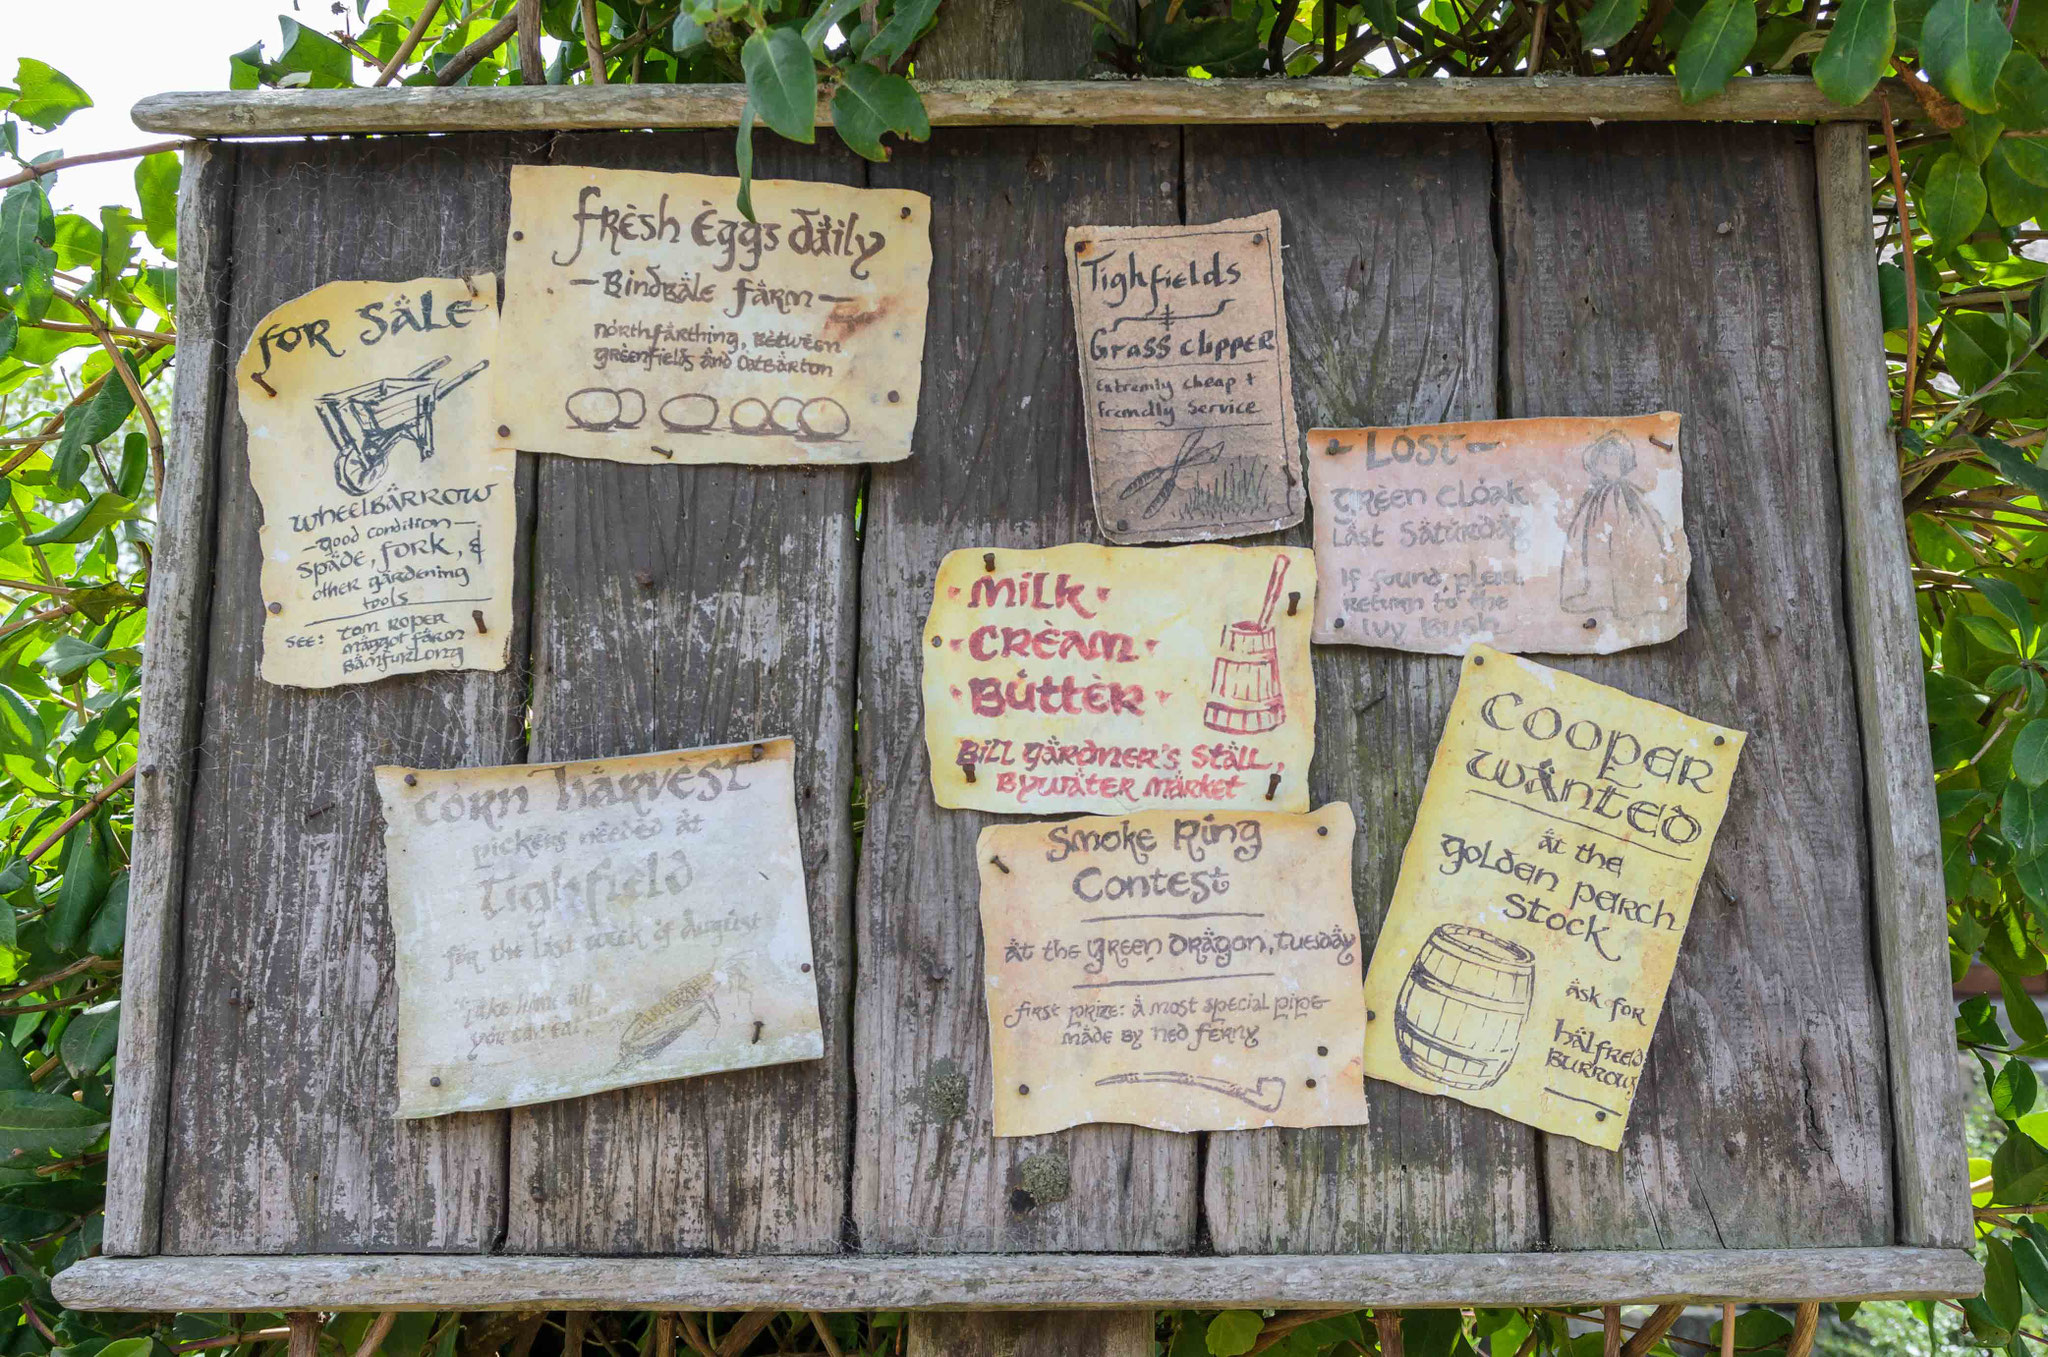 for Sale
wheelbarrow
-good condition-
spade, fork, &
other gardening
tools
see: tom roper
maggot farm
Bamfurlong
fresh Eggs daily
- Bindbale farm -
northfarthing, between
greenfields and oatbarton
Tighfields
Grass clipper
Extremly cheap +
friendly service
- Lost -
Green cloak
Last Saturday
If found, please
return to the
Ivy Bush
· Milk ·
· Cream ·
· Butter ·
Bill Gardner's Stall,
Bywater Market
Cooper
wanted
at the
golden perch
stock
ask for
halfred
Burrows
Corn harvest
pickers needed at
Tighfield
for the last week of August
"Take home all
you can eat."
Smoke Ring
Contest
at the Green Dragon, Tuesday
first prize: a most special pipe
made by ned ferny